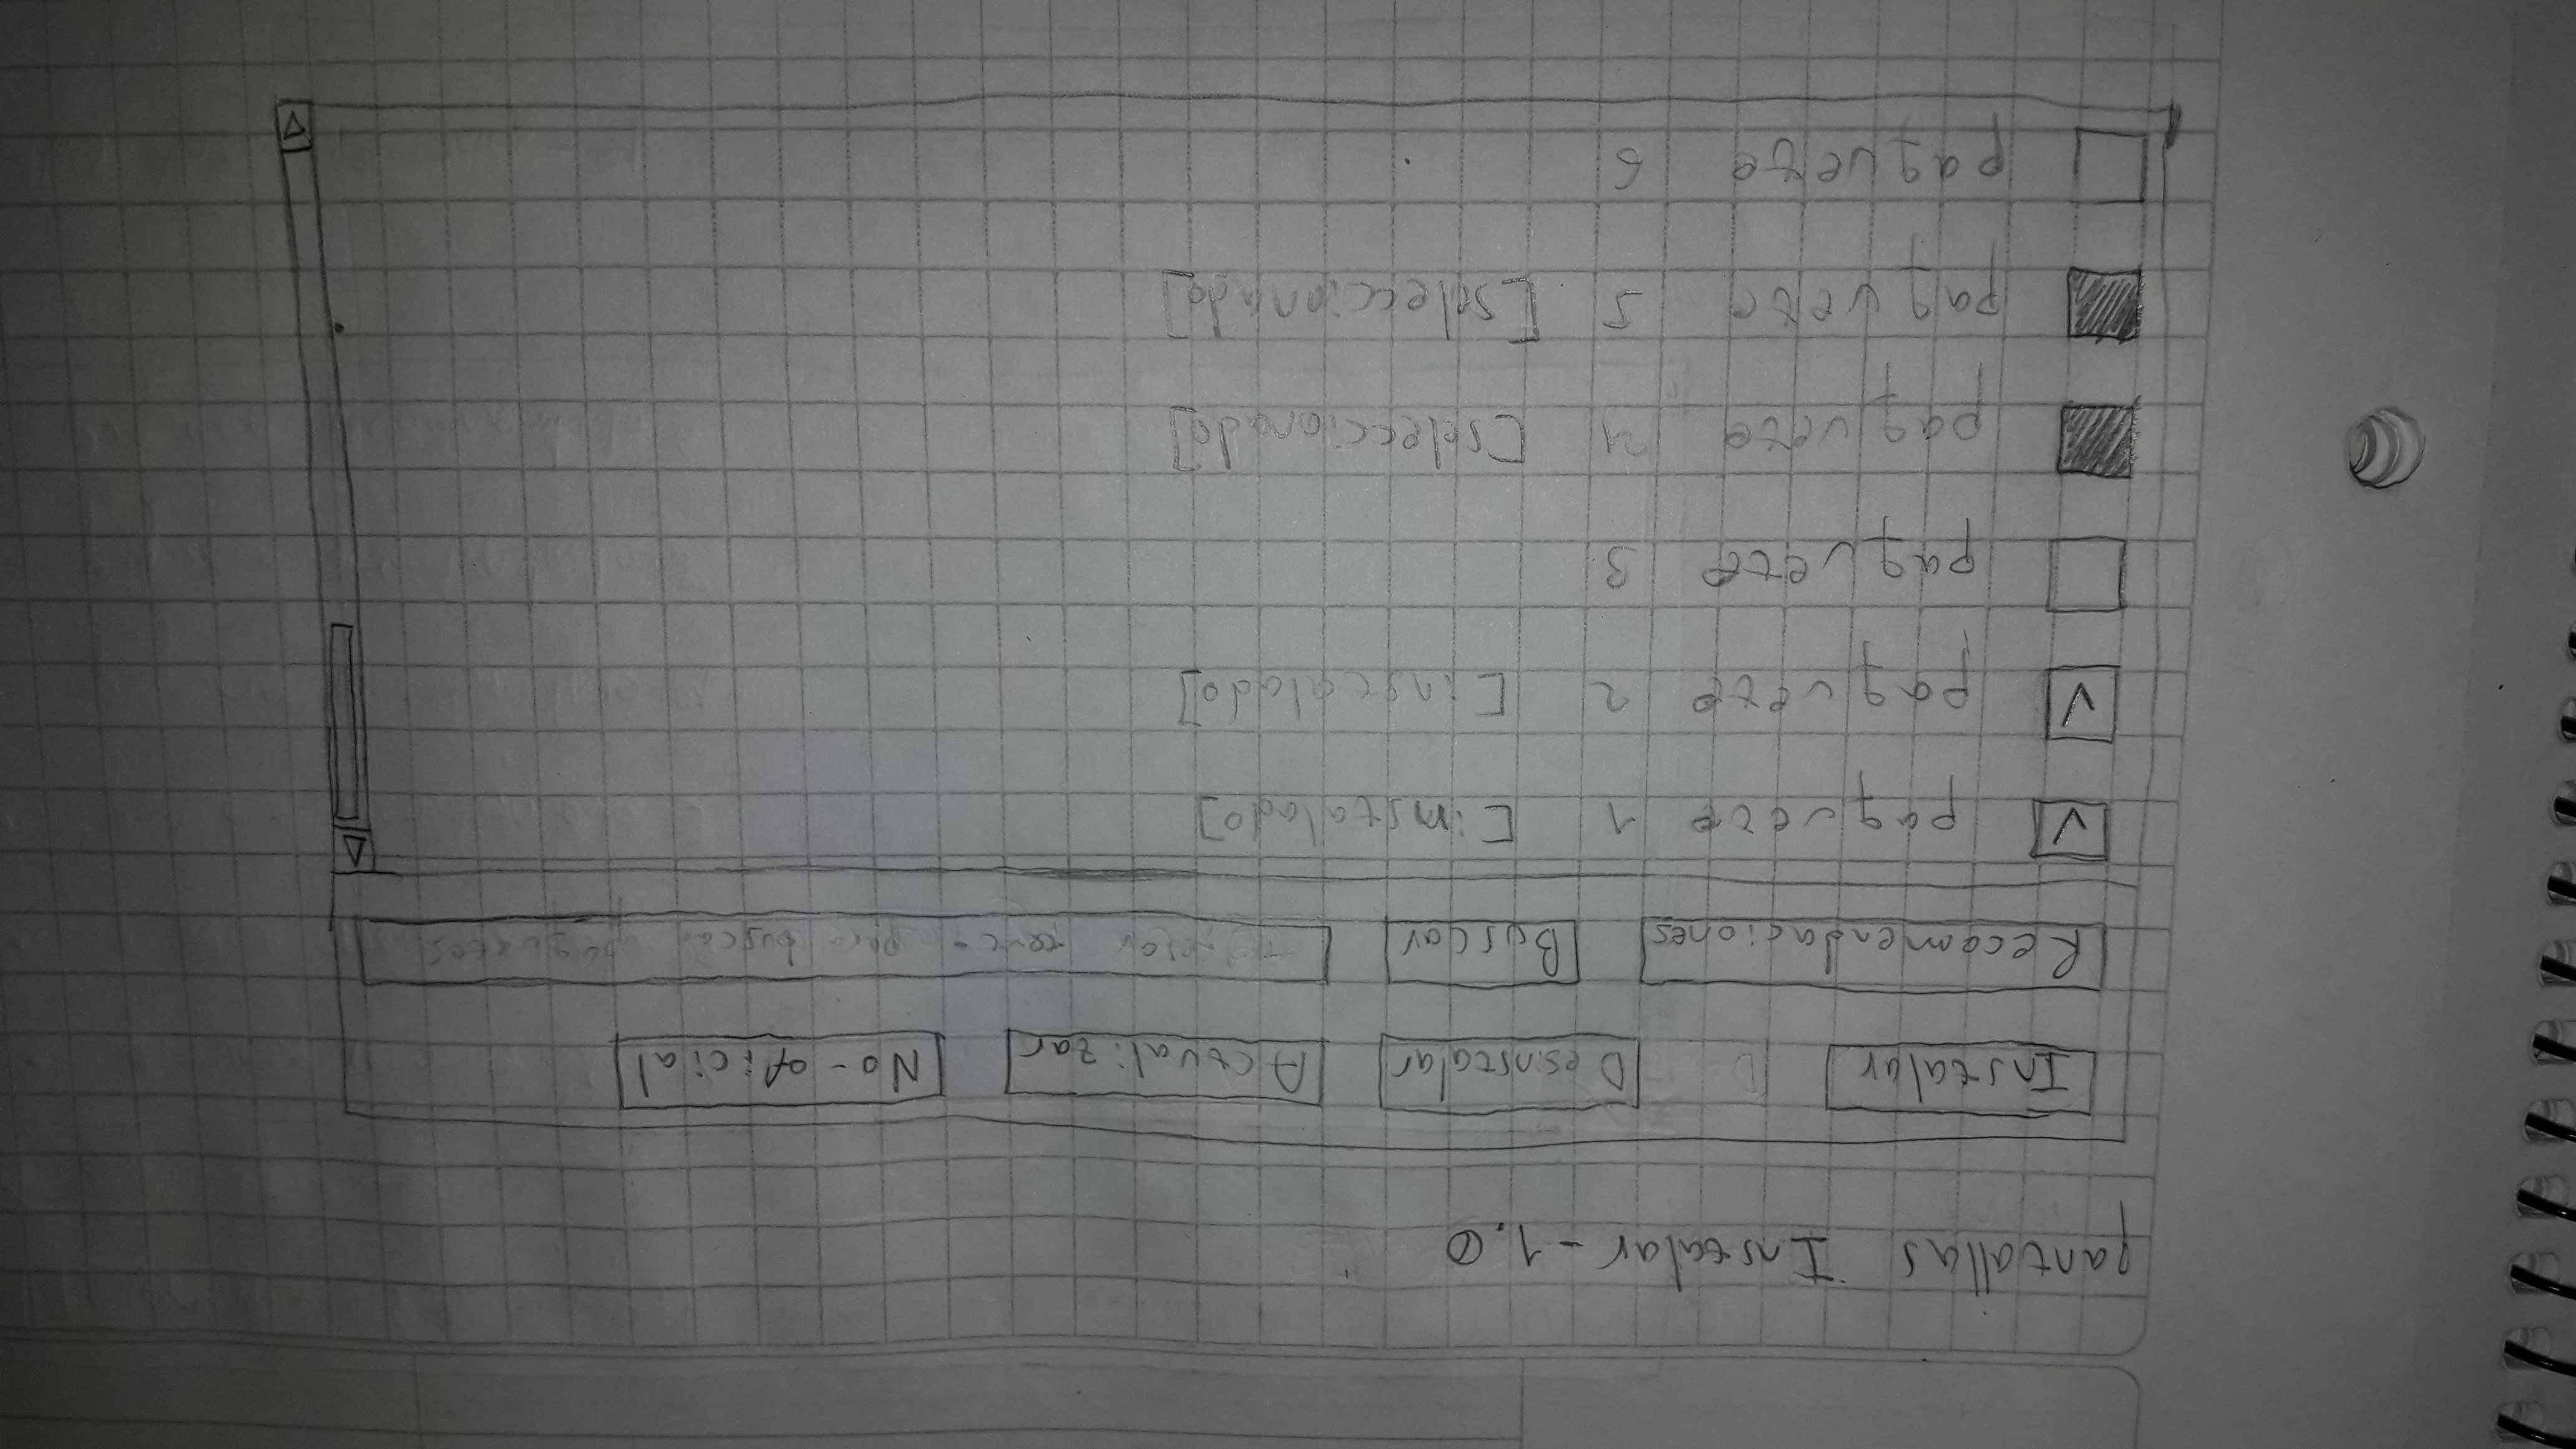 pantallas Instalar - 1.0
Instalar Desinstalar Actualizar No-oficial
Recomendaciones Buscar para buscar paquetes
paquete 1 [instalado]
paquete 2 [instalado]
paquete 3
paquete 4 [seleccionado]
paquete 5 [seleccionado]
paquete 6